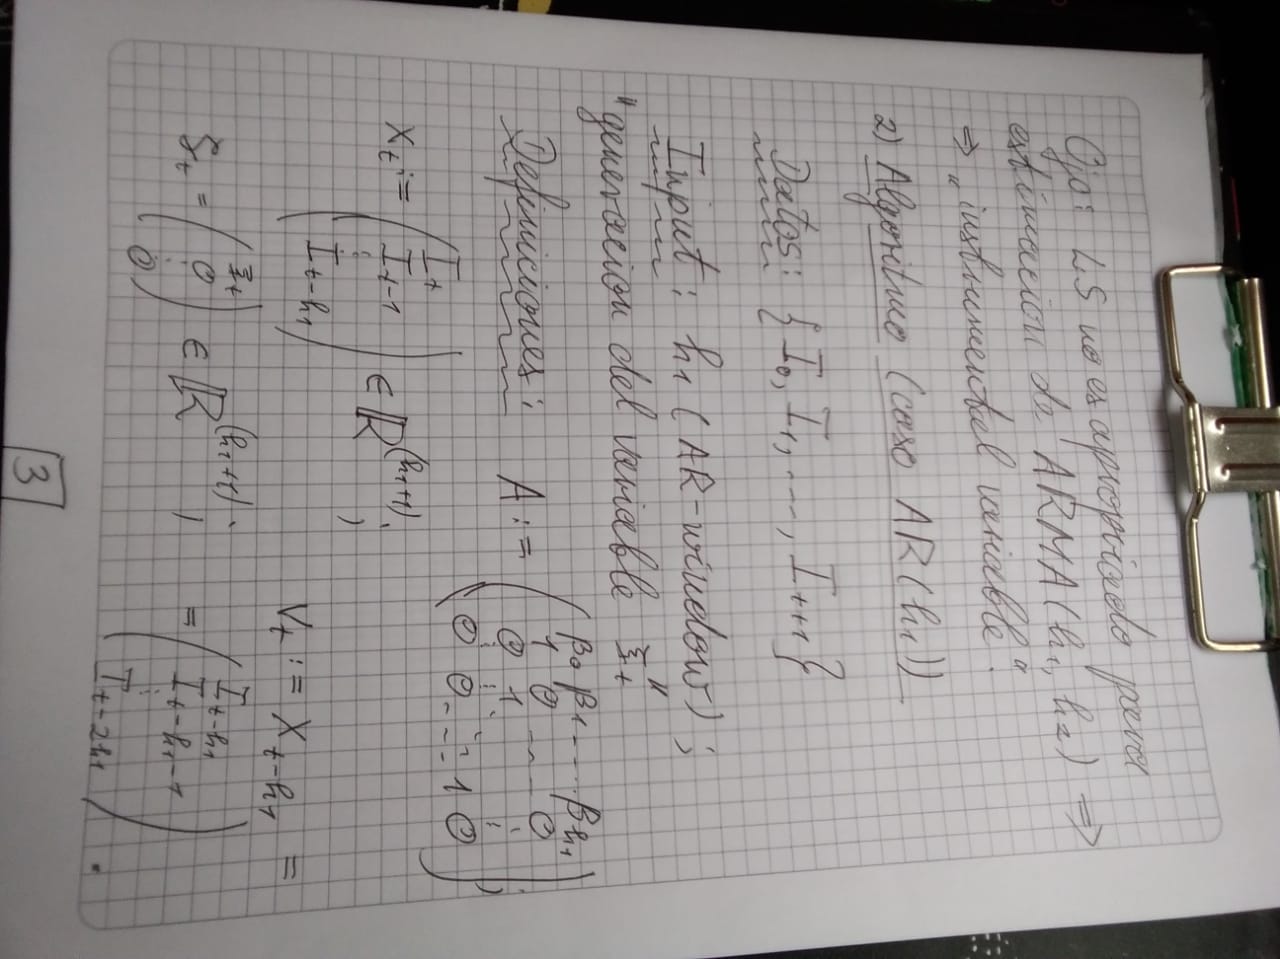 Ojo: LS no es apropriado para
estimación de ARMA(h₁, h₂) ⇒
⇒ „instrumental variable“.
2) Algoritmo (caso AR(h₁))
Datos: { I₀, I₁, ..., I_{t+1} }
Input: h₁ (AR-window) ;
"generacion del variable ξ_t"
Definiciones: A := ( β₀ β₁ ... β_{h₁}
1 0 ... 0
0 1 ⋮
⋮ ⋮ ⋱ ⋮
0 0 ... 1 0 ) ;
X_t := ( I_t
I_{t-1}
⋮
I_{t-h₁} ) ∈ ℝ^{(h₁+1)} ;
V_t := X_{t-h₁} =
ζ_t = ( ξ_t
0
⋮
0 ) ∈ ℝ^{(h₁+1)} ;
= ( I_{t-h₁}
I_{t-h₁-1}
⋮
I_{t-2h₁} ) .
3